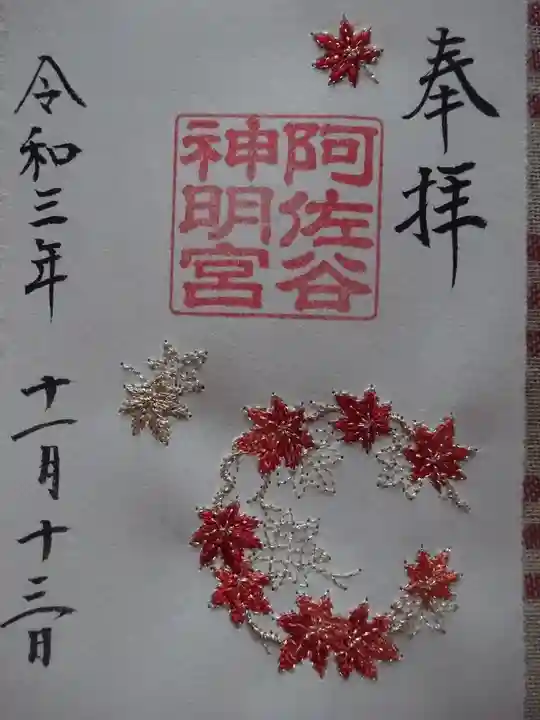 奉拝
阿佐谷
神明宮
令和三年 十一月十三日